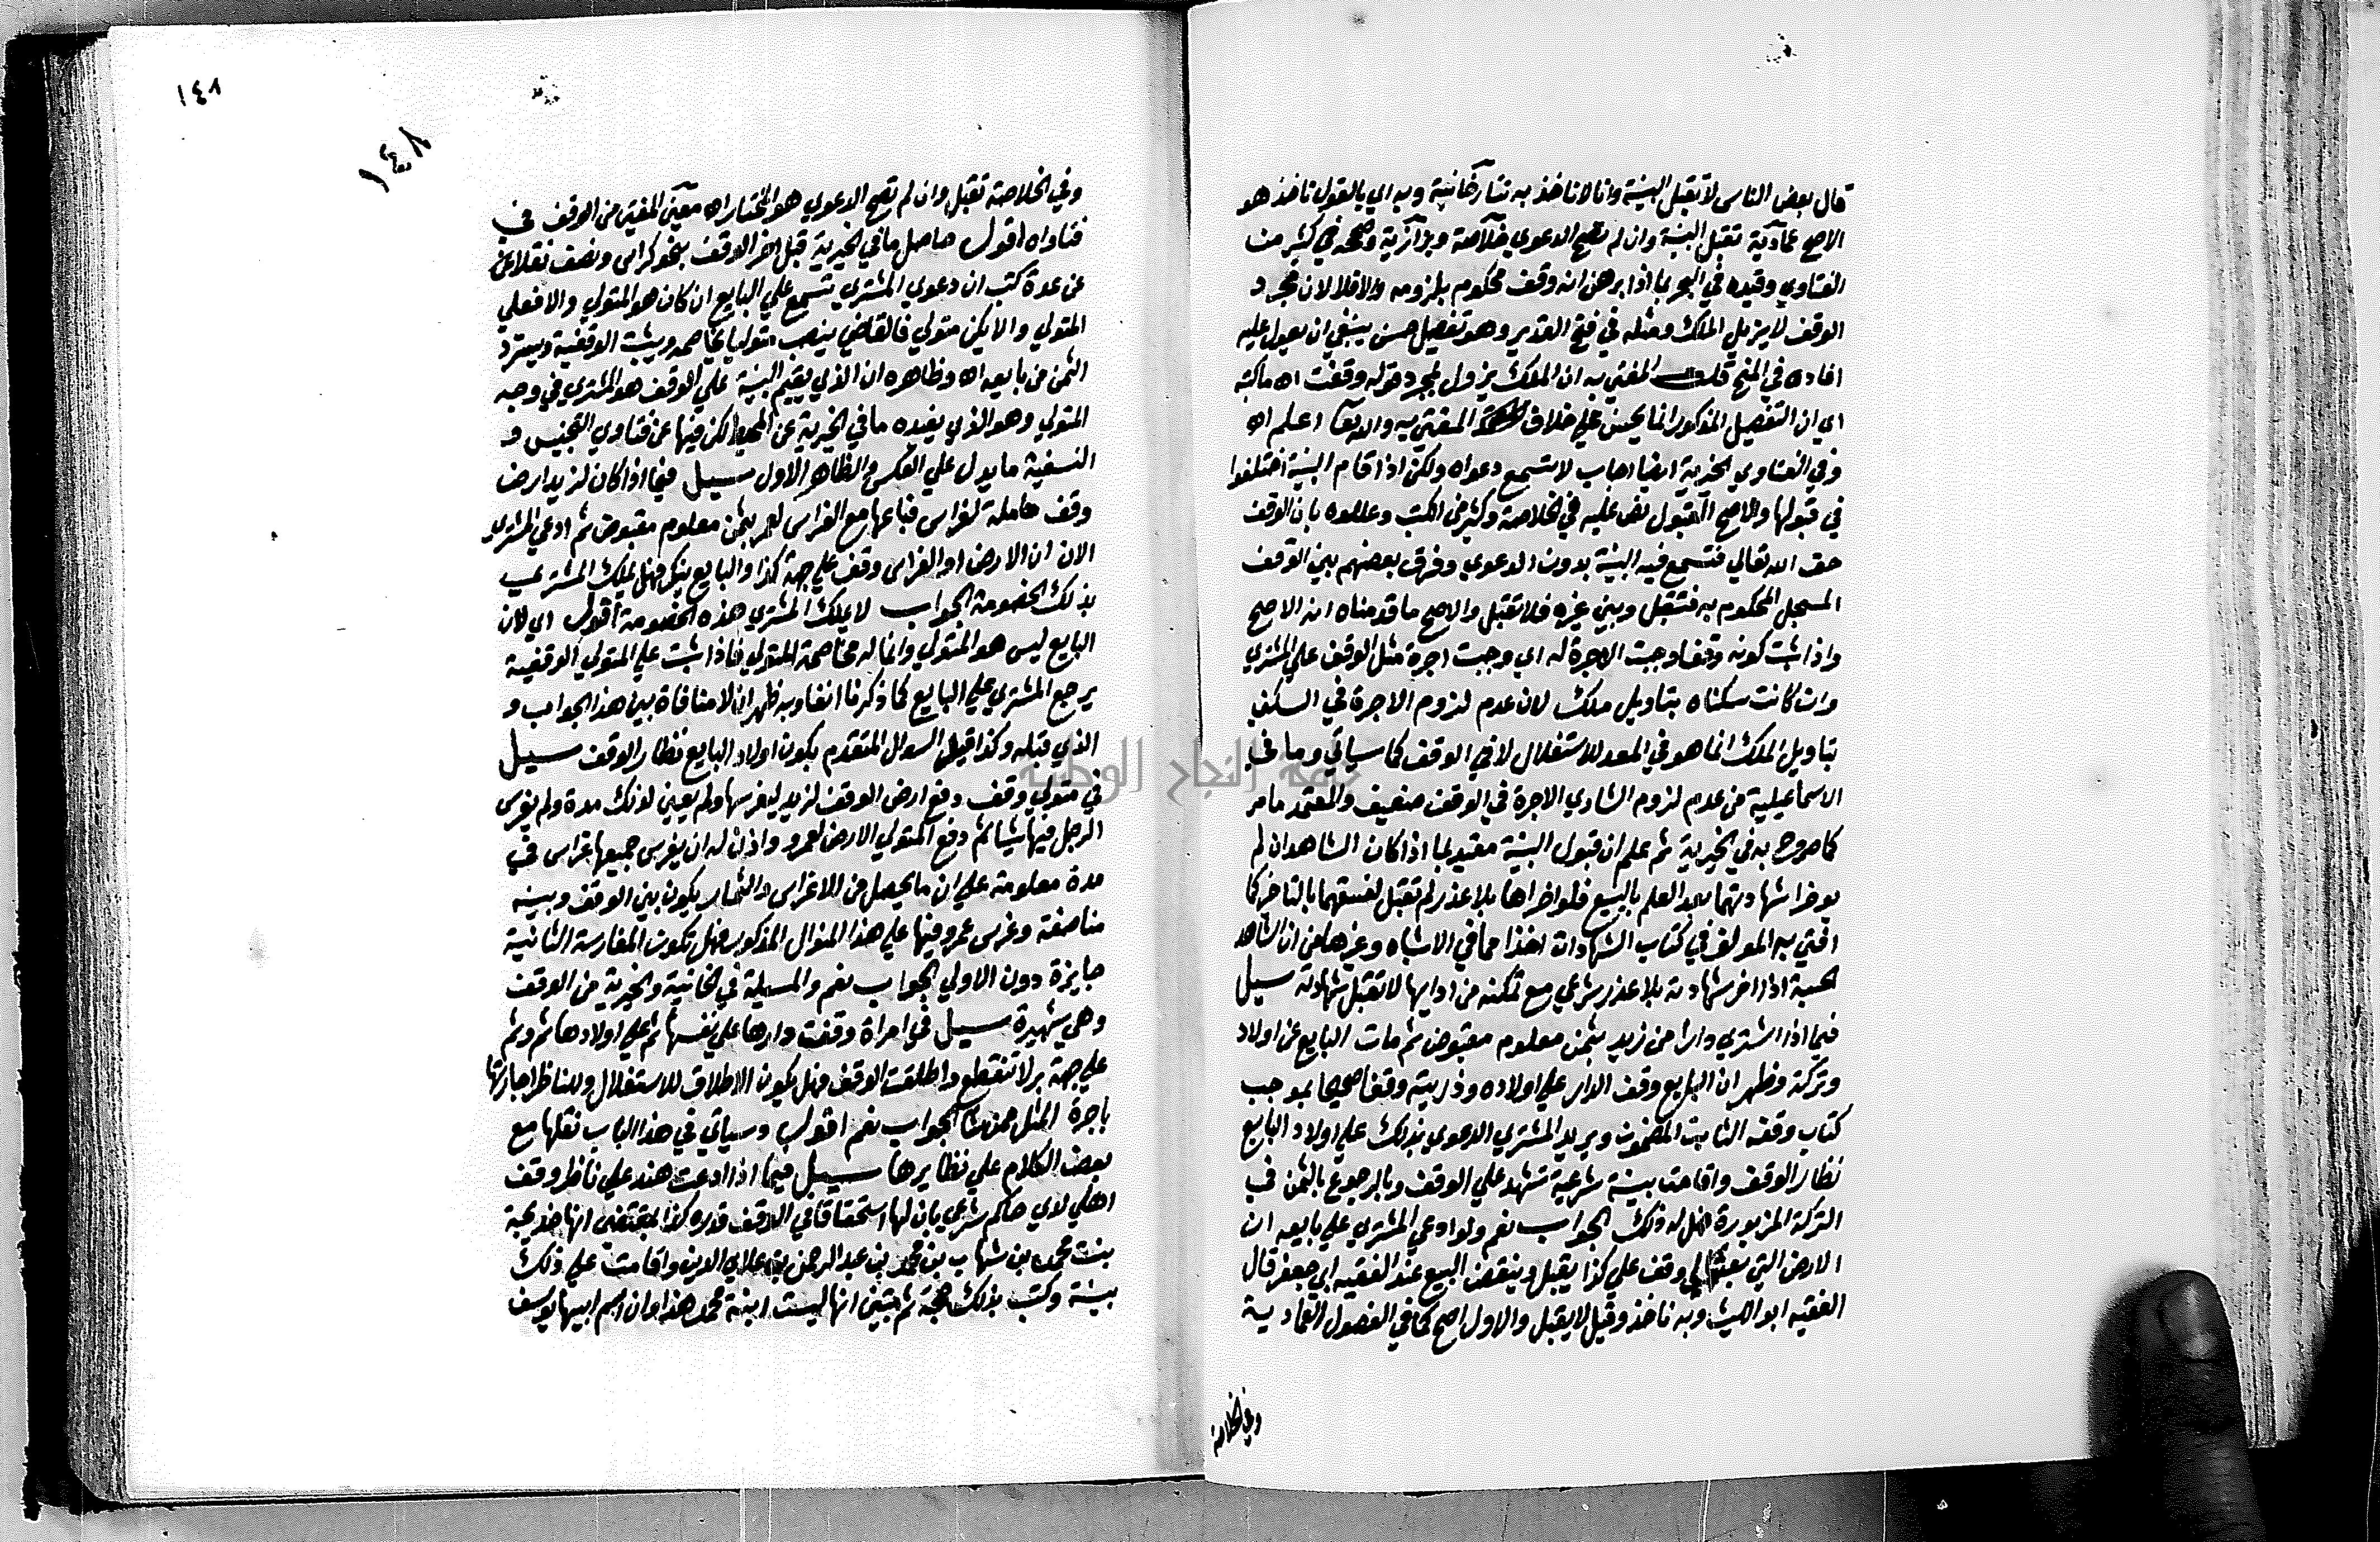 قال بعض الناس لا تقبل البينة وانا لا ناخذ به تتارخانية وبه اي بالقول ناخذ هو
الاصح عمادية تقبل البينة وان لم تصح الدعوي خلاصة وبزازية وصححه في كثير من
الفتاوي وقيده في البحر بما اذا برهن انه وقف محكوم بلزومه والا فلا لان مجرد
الوقف لا يزيل الملك ومثله في فتح القدير وهو تفصيل حسن ينبغي ان يعول عليه
افاده في المنح قلت المفتي به ان الملك يزول بمجرد قوله وقفت اه ما كتبه
اي ان التفصيل المذكور انما يحسن علي خلاف المفتي به والله تعا اعلم اه
وفي الفتاوي الخيرية ايضا اجاب لا تسمع دعواه ولكن اذا قام البينة اختلفوا
في قبولها والاصح القبول نص عليه في الخلاصة وكثير من الكتب وعللوه بان الوقف
حق الله تعالي فتسمع فيه البينة بدون الدعوي وفرق بعضهم بين الوقف
المسجل المحكوم به فتقبل وبين غيره فلا تقبل والاصح ما قدمناه انه الاصح
واذا ثبت كونه وقفا وجبت الاجرة له اي وجبت اجرة مثل الوقف علي المشتري
وان كانت سكناه بتاويل ملك لان عدم لزوم الاجرة في السكني
بتاويل الملك انما هو في المعد للاستغلال لا في الوقف كما سياتي وما في
الاسماعيلية من عدم لزوم الشاري الاجرة في الوقف ضعيف والمعتمد ما مر
كما صرح به في الخيرية ثم علم ان قبول البينة مقيد بما اذا كان الشاهدان لم
يوخرا شهادتهما بعد العلم بالبيع فلو اخراها بلا عذر لم تقبل لفسقهما بالتاخير كما
افتي به المولف في كتاب الشهادات اخذا مما في الاشباه وغيرها من ان الشاهد
الحسبة اذا اخر شهادته بلا عذر شرعي مع تمكنه من ادايها لا تقبل شهادته سيل
فيما اذا اشتري دارا من زيد بثمن معلوم مقبوض ثم مات البايع عن اولاد
وتركة وظهر ان البايع وقف الدار علي اولاده وذريته وقفا صحيحا بموجب
كتاب وقفه الثابت المضمون ويريد المشتري الدعوي بذلك علي اولاد البايع
نظار الوقف واقامت بينة شرعية تشهد علي الوقف وبالرجوع بالثمن في
التركة المزبورة فهل له ذلك الجواب نعم ولو ادعي المشتري علي بايعه ان
الارض التي بعتها لي وقف علي كذا يقبل وينقض البيع عند الفقيه ابي جعفر قال
الفقيه ابو الليث وبه ناخذ وقيل لا يقبل والاول اصح كما في الفصول العمادية
وفي الخلاصة
١٤٨
١٤٨
وفي الخلاصة تقبل وان لم تصح الدعوي هو المختار اه معين المفتي من الوقف في
فتاواه اقول حاصل ما في الخيرية قبل اخر الوقف بنحو كراس ونصف نقلا عن
عن عدة كتب ان دعوي المشتري تسمع علي البايع ان كان هو المتولي والا فعلي
المتولي والا يكن متولي فالقاضي ينصب متوليا يخاصمه ويثبت الوقفية ويسترد
الثمن من بايعه اه وظاهره ان الذي يقيم البينة علي الوقف هو المشتري في وجه
المتولي وهو الذي يفيده ما في الخيرية عن المحيط لكن فيها عن فتاوي التجنيس و
النسفية ما يدل علي العكس والظاهر الاول سيل فيما اذا كان لزيد ارض
وقف حاملة لغراس فباعها مع الغراس لعمر بثمن معلوم مقبوض ثم ادعي المشتري
الان ان الارض او الغراس وقف علي جهة كذا والبايع ينكر فهل يملك المشتري
بذلك الخصومة الجواب لا يملك المشتري هذه الخصومة اقول اي لان
البايع ليس هو المتولي وانما له مخاصمة المتولي فاذا ثبت علي المتولي الوقفية
يرجع المشتري علي البايع كما ذكرنا انفا وبه ظهر ان لا منافاة بين هذا الجواب و
الذي قبله وكذا قيل السوال المتقدم بكون اولاد البايع نظار الوقف سيل
في متولي وقف دفع ارض الوقف لزيد ليغرسها ولم يعين لذلك مدة ولم يغرس
الرجل فيها شيا ثم دفع المتولي الارض لعمرو واذن له ان يغرس جميعها غراس في
مدة معلومة علي ان ما يحصل من الاغراس والثمار يكون بين الوقف وبينه
مناصفة وغرس عمرو فيها علي هذا المنوال المذكور فهل تكون المغارسة الثانية
جايزة دون الاولي الجواب نعم والمسيلة في الخانية والخيرية من الوقف
وهي شهيرة سيل في امراة وقفت دارها علي نفسها ثم علي اولادها ثم وثم
علي جهة بر لا تنقطع واطلقت الوقف فهل يكون الاطلاق للاستغلال وللناظر اجارتها
باجرة المثل ممن شا الجواب نعم اقول وسياتي في هذا الباب نقلها مع
بعض الكلام علي نظايرها سيل فيما اذا ادعت هند علي ناظر وقف
اهلي لدي حاكم شرعي بان لها استحقاقا في الوقف قدره كذا بمقتضي انها خديجة
بنت محمد بن شهاب بن محمد بن عبد الرحمن بن علاي الدين واقامت علي ذلك
بينة وكتب بذلك حجة ثم تبين انها ليست ابنة محمد هذا وان اسم ابيها يوسف
جامعة النجاح الوطنية